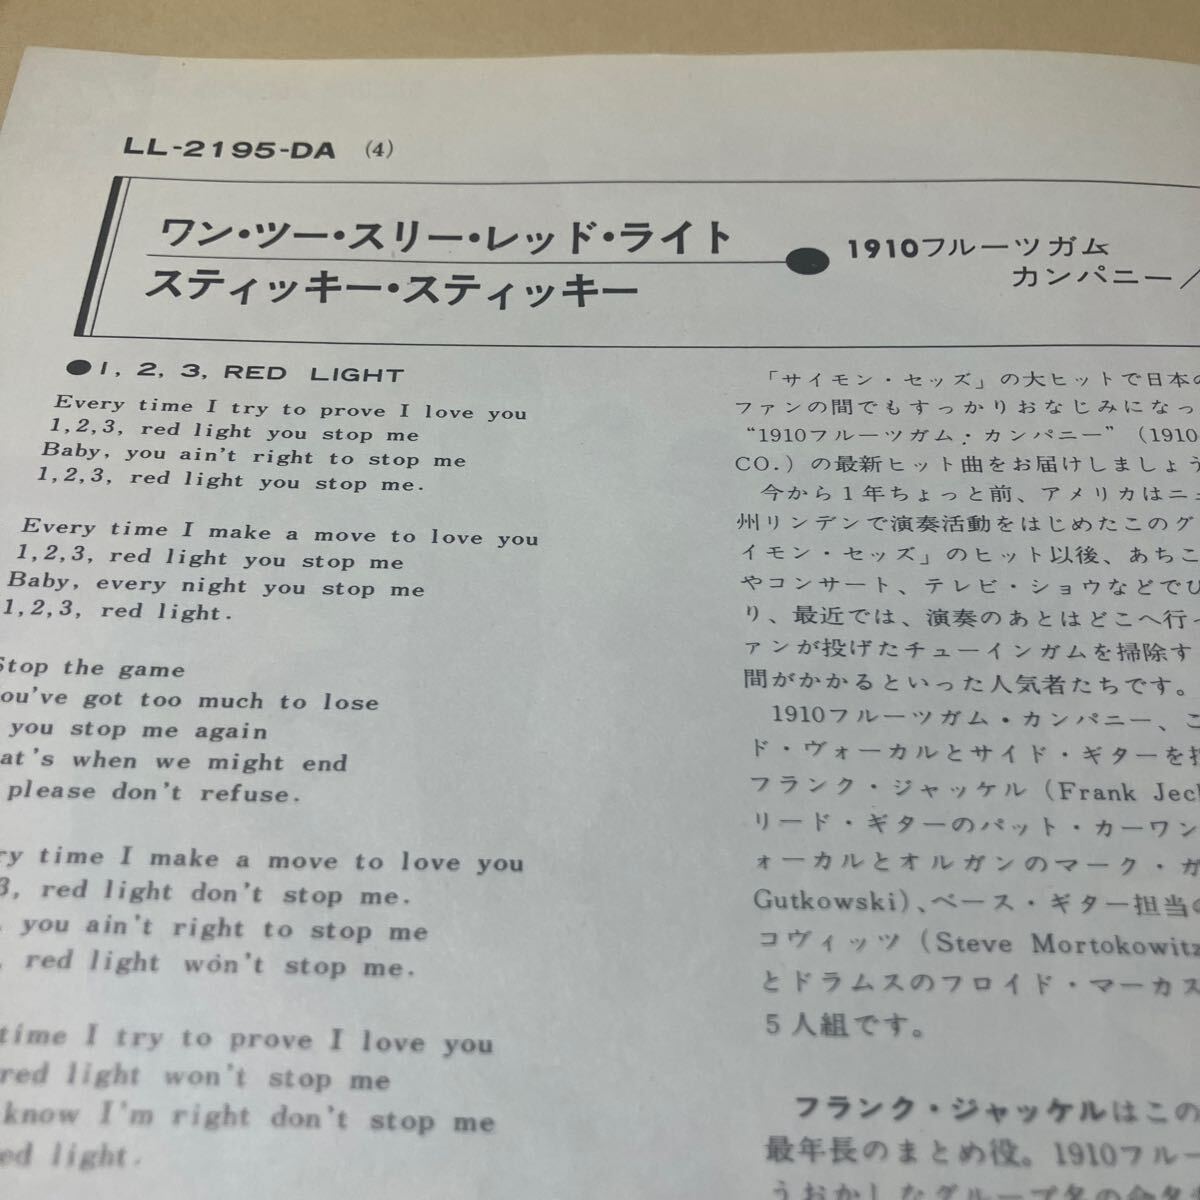 LL-2195-DA (4)
ワン・ツー・スリー・レッド・ライト
スティッキー・スティッキー
●1910フルーツガム
カンパニー／
●1, 2, 3, RED LIGHT
Every time I try to prove I love you
1,2,3, red light you stop me
Baby, you ain't right to stop me
1,2,3, red light you stop me.
Every time I make a move to love you
1,2,3, red light you stop me
Baby, every night you stop me
1,2,3, red light.
Stop the game
ou've got too much to lose
you stop me again
at's when we might end
please don't refuse.
ry time I make a move to love you
3, red light don't stop me.
, you ain't right to stop me
, red light won't stop me.
time I try to prove I love you
red light won't stop me
know I'm right don't stop me
ed light.
「サイモン・セッズ」の大ヒットで日本の
ファンの間でもすっかりおなじみになっ
“1910フルーツガム・カンパニー”（1910
CO.）の最新ヒット曲をお届けしましょう
今から1年ちょっと前、アメリカはニュ
州リンデンで演奏活動をはじめたこのグ
イモン・セッズ」のヒット以後、あちこ
やコンサート、テレビ・ショウなどでひ
り、最近では、演奏のあとはどこへ行っ
ァンが投げたチューインガムを掃除す
間がかかるといった人気者たちです。
1910フルーツガム・カンパニー、こ
ド・ヴォーカルとサイド・ギターを担
フランク・ジャッケル（Frank Jeck
リード・ギターのパット・カーワン
ォーカルとオルガンのマーク・ガ
Gutkowski）、ベース・ギター担当の
コヴィッツ（Steve Mortokowitz
とドラムスのフロイド・マーカス
5人組です。
フランク・ジャッケルはこの
最年長のまとめ役。1910フルー
うおかしなグループ名の命名